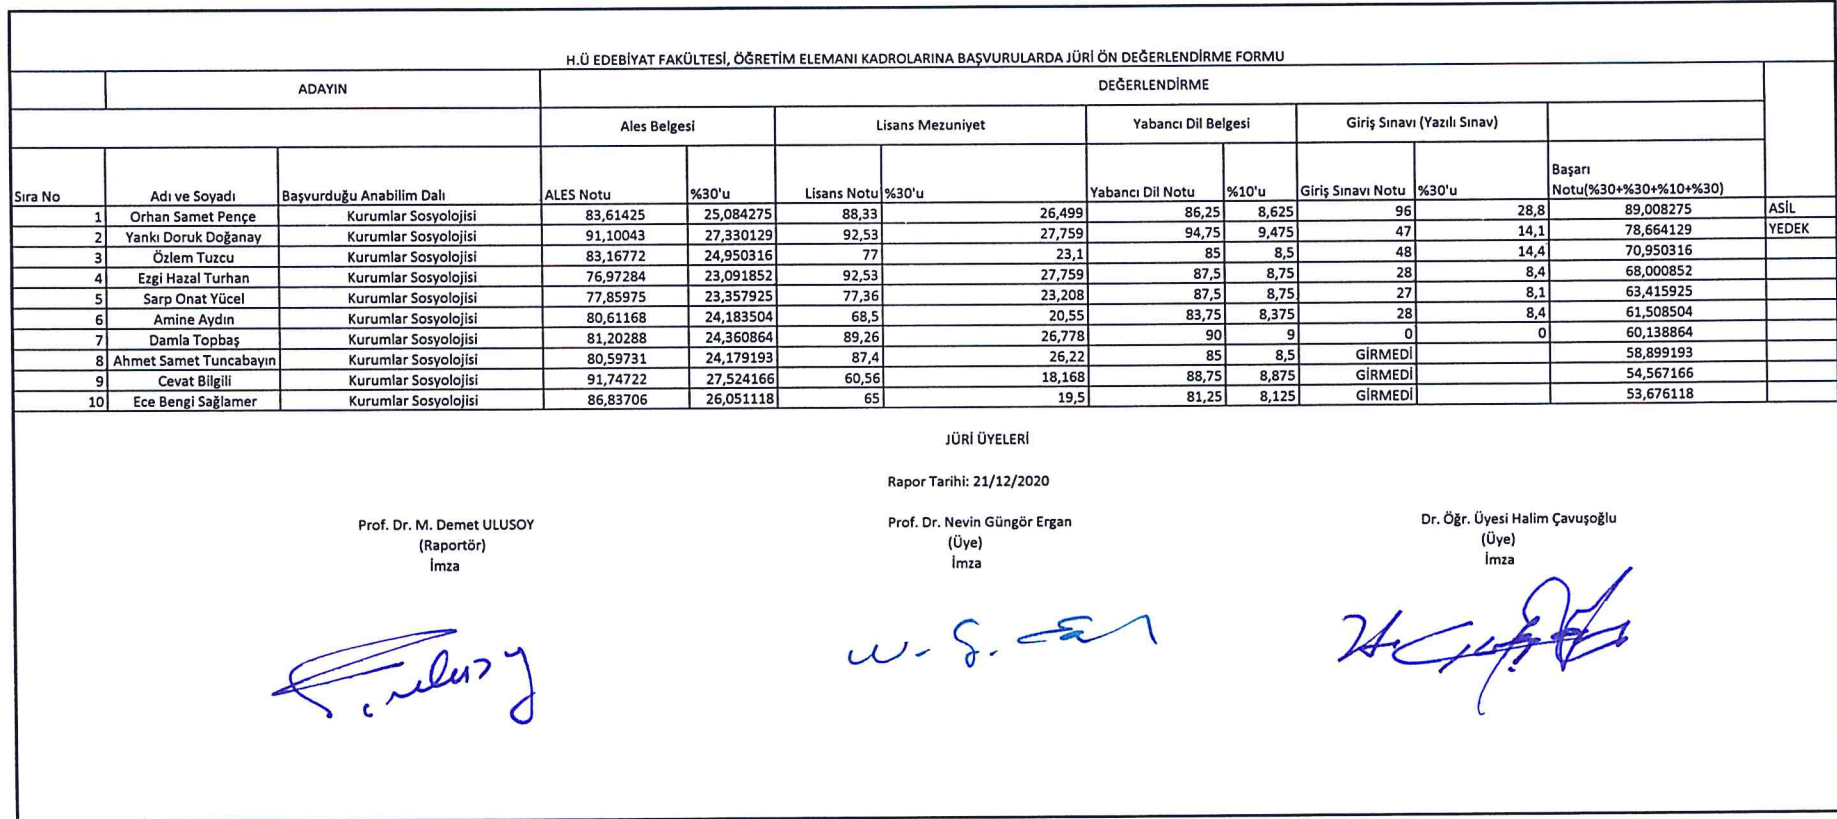 H.Ü EDEBİYAT FAKÜLTESİ, ÖĞRETİM ELEMANI KADROLARINA BAŞVURULARDA JÜRİ ÖN DEĞERLENDİRME FORMU
ADAYIN DEĞERLENDİRME
Ales Belgesi Lisans Mezuniyet Yabancı Dil Belgesi Giriş Sınavı (Yazılı Sınav)
Sıra No Adı ve Soyadı Başvurduğu Anabilim Dalı ALES Notu %30'u Lisans Notu %30'u Yabancı Dil Notu %10'u Giriş Sınavı Notu %30'u Başarı Notu(%30+%30+%10+%30)
1 Orhan Samet Pençe Kurumlar Sosyolojisi 83,61425 25,084275 88,33 26,499 86,25 8,625 96 28,8 89,008275 ASİL
2 Yankı Doruk Doğanay Kurumlar Sosyolojisi 91,10043 27,330129 92,53 27,759 94,75 9,475 47 14,1 78,664129 YEDEK
3 Özlem Tuzcu Kurumlar Sosyolojisi 83,16772 24,950316 77 23,1 85 8,5 48 14,4 70,950316
4 Ezgi Hazal Turhan Kurumlar Sosyolojisi 76,97284 23,091852 92,53 27,759 87,5 8,75 28 8,4 68,000852
5 Sarp Onat Yücel Kurumlar Sosyolojisi 77,85975 23,357925 77,36 23,208 87,5 8,75 27 8,1 63,415925
6 Amine Aydın Kurumlar Sosyolojisi 80,61168 24,183504 68,5 20,55 83,75 8,375 28 8,4 61,508504
7 Damla Topbaş Kurumlar Sosyolojisi 81,20288 24,360864 89,26 26,778 90 9 0 0 60,138864
8 Ahmet Samet Tuncabayın Kurumlar Sosyolojisi 80,59731 24,179193 87,4 26,22 85 8,5 GİRMEDİ 58,899193
9 Cevat Bilgili Kurumlar Sosyolojisi 91,74722 27,524166 60,56 18,168 88,75 8,875 GİRMEDİ 54,567166
10 Ece Bengi Sağlamer Kurumlar Sosyolojisi 86,83706 26,051118 65 19,5 81,25 8,125 GİRMEDİ 53,676118
JÜRİ ÜYELERİ
Rapor Tarihi: 21/12/2020
Prof. Dr. M. Demet ULUSOY Prof. Dr. Nevin Güngör Ergan Dr. Öğr. Üyesi Halim Çavuşoğlu
(Raportör) (Üye) (Üye)
İmza İmza İmza